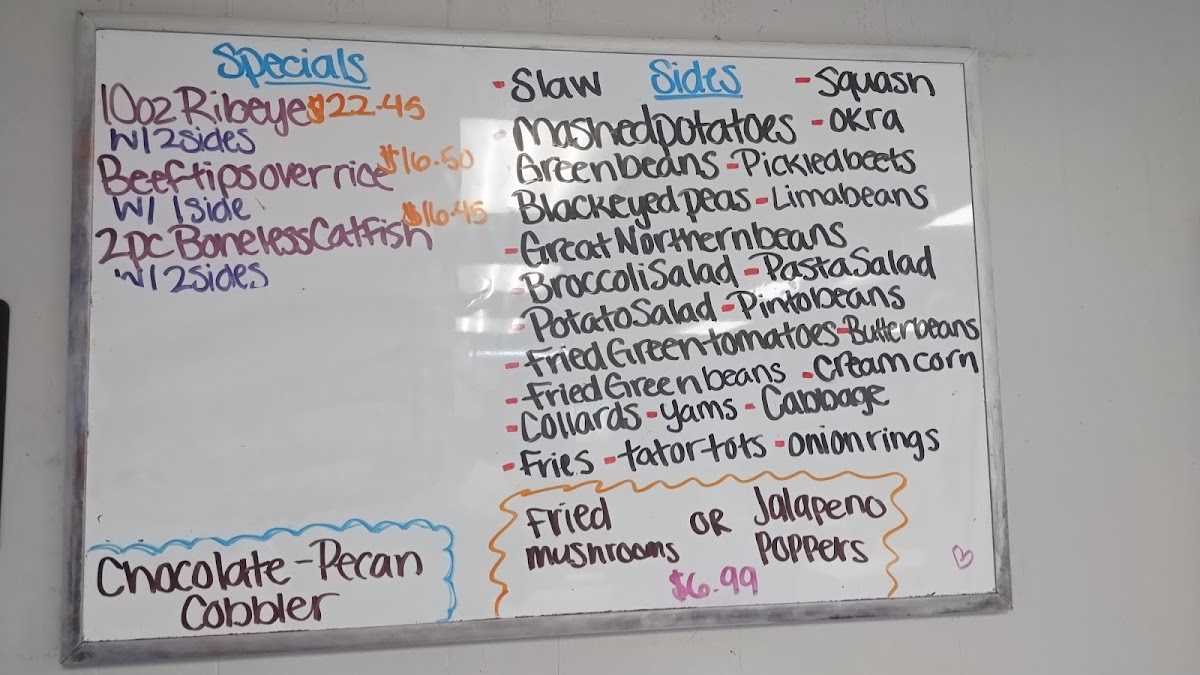 Specials
10oz Ribeye $22.45
w/ 2sides
Beef tips over rice $16.50
w/ 1side
2pc Boneless Catfish $16.45
w/ 2sides
Chocolate-Pecan
Cobbler
Sides
- Slaw - Squash
- Mashed potatoes - Okra
Green beans - Pickled beets
Blackeyed peas - Lima beans
- Great Northern beans
- Broccoli Salad - Pasta Salad
- Potato Salad - Pinto beans
- Fried Green tomatoes - Butter beans
- Fried Green beans - Cream corn
- Collards - yams - Cabbage
- Fries - tator tots - onion rings
Fried mushrooms OR Jalapeno Poppers
$6.99